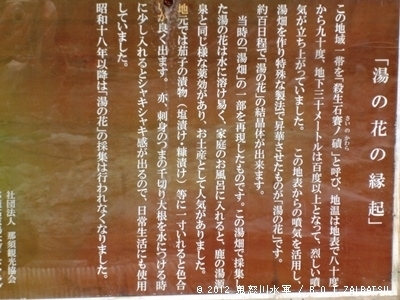 「湯の花の縁起」
この地域一帯を「殺生石賽ノ磧」と呼び、地温は地表で八十度
さいのかわら
から九十度、地下三十メートルは百度以上となって、烈しい噴
気が立ち上がっていました。　この地表からの噴気を活用し、
湯畑を作り特殊な製法で昇華させたものが「湯の花」です。
約百日程で「湯の花」の結晶体が出来ます。
当時の「湯畑」の一部を再現したものです。この湯畑で採集し
た湯の花は水に溶け易く、家庭のお風呂に入れると、鹿の湯源
泉と同じ様な薬効があり、お土産として人気がありました。
地元では茄子の漬物（塩漬け・糠漬け）等に一寸いれると色合
いが良く出ます。亦、刺身のつまの千切り大根を水につける時
に少し入れるとシャキシャキ感が出るので、日常生活にも使用
していました。
昭和十八年以降は「湯の花」の採集は行われなくなりました。
社団法人　那須観光協会
© 2012 鬼怒川水軍 / R.O.T.ZALBATSU